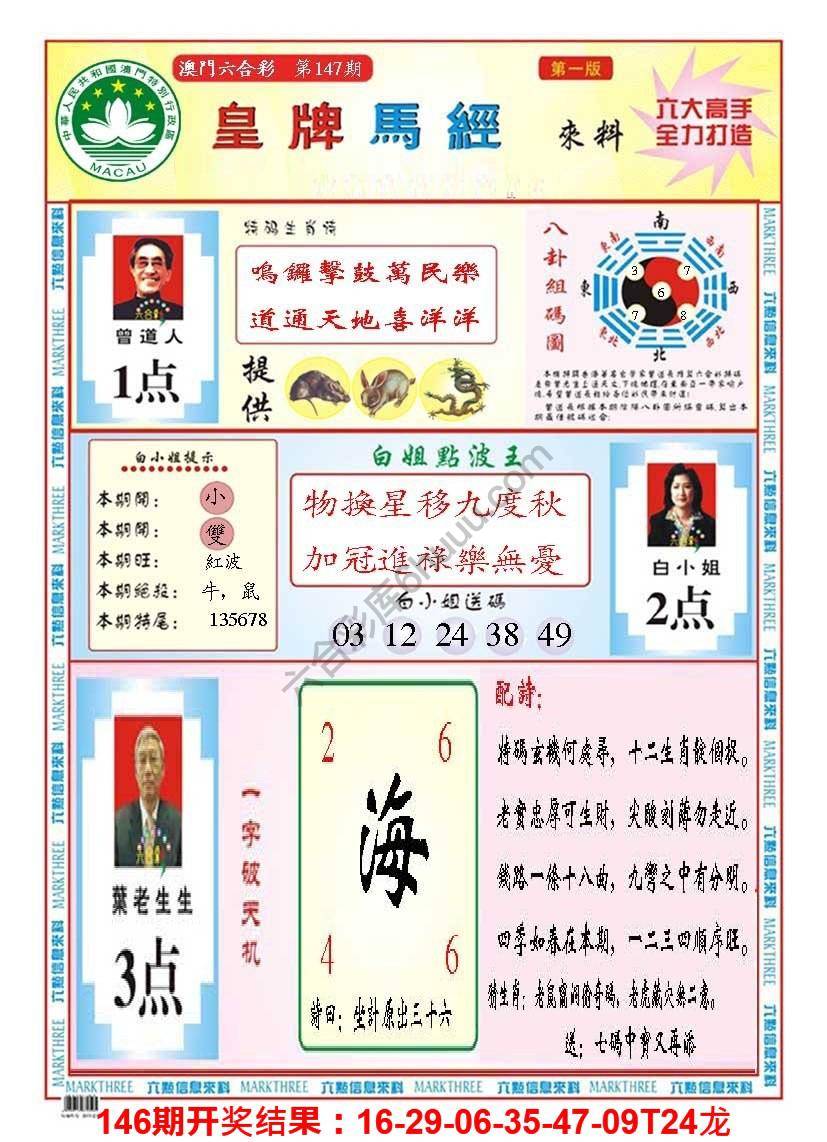 澳門六合彩 第147期
第一版
中華人民共和國澳門特別行政區
MACAU
皇牌馬經
來料
六大高手
全力打造
曾道人
1点
特码生肖诗
鳴鑼擊鼓萬民樂
道通天地喜洋洋
提供
八卦組碼圖
南
東南
西南
東
西
東北
西北
北
3
7
6
7
8
白小姐提示
本期開: 小
本期開: 雙
本期旺: 紅波
本期絕殺: 牛，鼠
本期特尾: 135678
白姐點波王
物換星移九度秋
加冠進祿樂無憂
白小姐送碼
03 12 24 38 49
白小姐
2点
葉老生生
3点
一字破天机
2 6
海
4 6
詩曰: 坐計原出三十六
配詩:
特碼玄機何處尋，十二生肖說個捉。
老實忠厚可生財，尖酸刻薄勿走近。
鐵路一條十八曲，九彎之中有分明。
四季如春在本期，一二三四順序旺。
送: 七碼中寶又再添
MARKTHREE 六點信息來料 MARKTHREE 六點信息來料 MARKTHREE 六點信息來料 MARKTHREE 六點信息來料
六合彩库6huuu.com
146期开奖结果：16-29-06-35-47-09T24龙